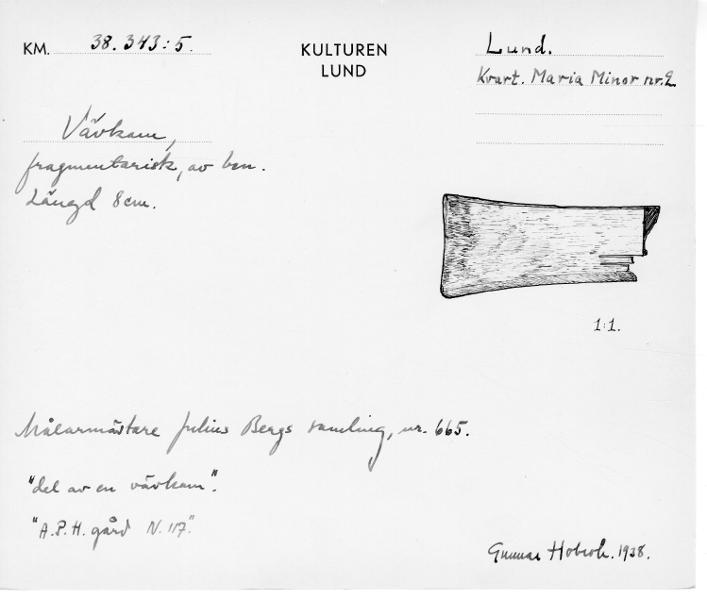 KM. 38.343:5.
KULTUREN
LUND
Lund.
Kvart. Maria Minor nr.2
Vävkam,
fragmentarisk, av ben.
Längd 8cm.
1:1.
Målarmästare Julius Bergs samling, nr. 665.
"del av en vävkam".
"A.P.H. gård N. 117"
Gunnar 1938.